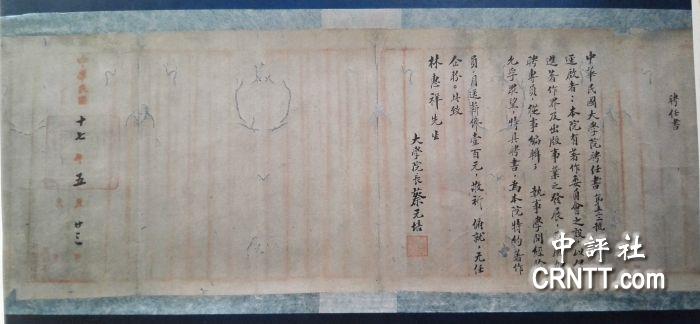 聘任书
中華民國大學院聘任書第五二號
逕啟者：本院有著作委員會之設，以促
進著作界及出版事業之發展，
聘專員，從事編輯；執事學問經
允孚眾望，特具聘書，為本院特約著作
員，月送薪俸壹百元，敬祈 俯就，无任
企盼。此致
林惠祥先生
大學院長蔡元培
中華民國 十七 年 五 月 廿三 日
中評社
CRNTT.com